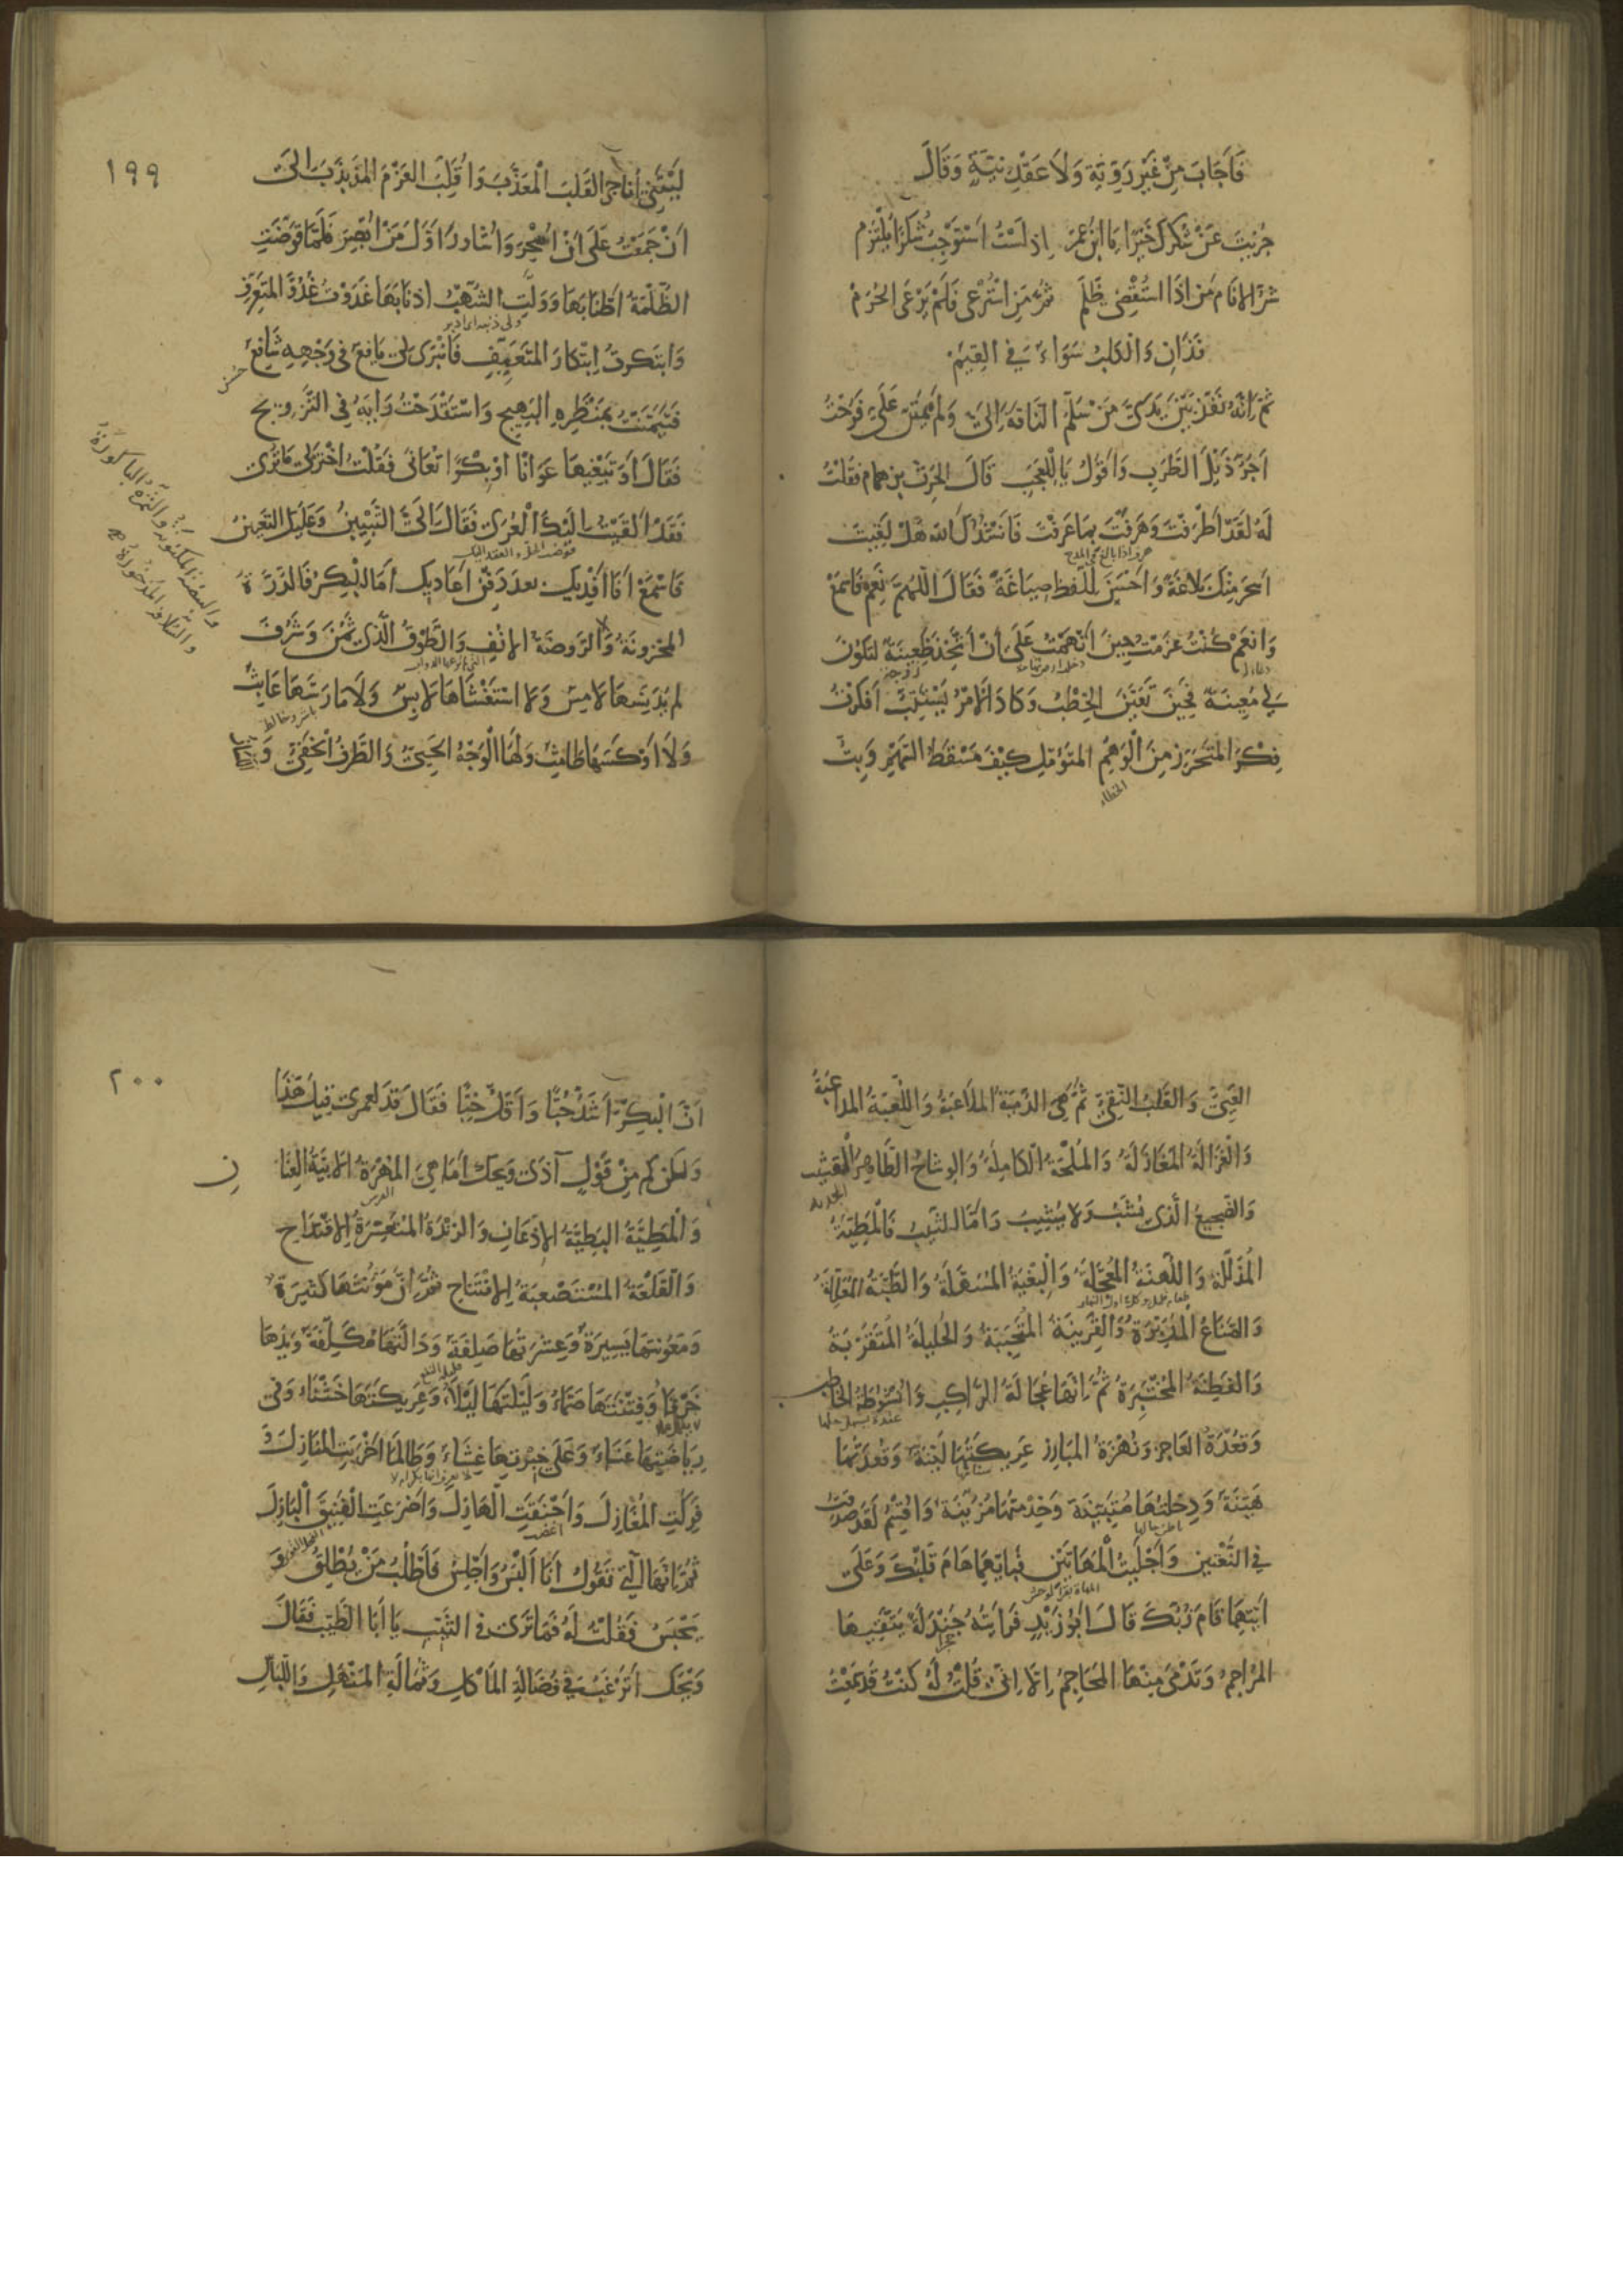 فَأَجَابَ مِنْ غَيْرِ رَوِيَّةٍ وَلَا عَقْدِ نِيَّةٍ وَقَالَ
جُزِيتَ عَنْ شُكْرِكَ خَيْرًا يَا ابْنَ عَمّ إِذْ لَسْتُ أَسْتَوْجِبُ شُكْرًا يُلْتَزَم
شَرُّ الْأَنَامِ مَنْ إِذَا اسْتُقْضِيَ ظَلَم ثُمَّ مَنِ اسْتُرْعِيَ فَلَمْ يَرْعَ الْحُرَم
فَذَانِ وَالْكَلْبُ سَوَاءٌ فِي الْقِيَم
ثُمَّ إِنَّهُ نَفَّذَ بَيْنَ يَدَيَّ مَنْ سَلَّمَ النَّاقَةَ إِلَيَّ وَلَمْ يَمْتَنَّ عَلَيَّ فَرُحْتُ
أَجُرُّ ذَيْلَ الطَّرَبِ وَأَقُولُ يَا لَلْعَجَبِ قَالَ الْحَرِثُ بن همام فَقُلْتُ
لَهُ لَقَدْ أَطْرَفْتَ وَهَرَفْتَ بِمَا عَرَفْتَ فَأَنْشُدُكَ اللهَ هَلْ لَقِيتَ
أَسْحَرَ مِنْكَ بَلَاغَةً وَأَحْسَنَ لِلَّفْظِ صِيَاغَةً فَقَالَ اللّٰهُمَّ نَعَمْ فَاسْمَعْ
وَانْعَمْ كُنْتُ عَزَمْتُ حِينَ أَتْهَمْتُ عَلَى أَنْ أَتَّخِذَ ظَعِينَةً لِتَكُونَ
لِي مُعِينَةً فَحِينَ تَعَيَّنَ الْخِطْبُ وَكَادَ الْأَمْرُ يَسْتَتِبُّ أَفْكَرْتُ
فِكْرَ الْمُتَحَرِّزِ مِنَ الْوَهْمِ الْمُتَأَمِّلِ كَيْفَ مَسْقَطُ السَّهْمِ وَبِتُّ
الخطاء
١٩٩
لَيْلَتِي أُنَاجِي الْقَلْبَ الْمُعَذَّبَ وَأُقَلِّبُ الْعَزْمَ الْمُذَبْذَبَ إِلَى
أَنْ جَمَعْتُ عَلَى أَنْ أُسْحِرَ وَأُشَاوِرَ أَوَّلَ مَنْ أُبْصِرُ فَلَمَّا قَوَّضَتِ
الظُّلْمَةُ أَطْنَابَهَا وَوَلَّتِ الشُّهُبُ أَذْنَابَهَا غَدَوْتُ غُدُوَّ الْمُتَعَرِّفِ
وَابْتَكَرْتُ ابْتِكَارَ الْمُتَعَيِّفِ فَانْبَرَى لِي يَافِعٌ فِي وَجْهِهِ شَافِعٌ
حسن
فَتَيَمَّنْتُ بِمَنْظَرِهِ الْبَهِيجِ وَاسْتَقْدَحْتُ رَأْيَهُ فِي التَّزْوِيجِ
فَقَالَ أَوَتَبْغِيهَا عَوَانًا أَوْ بِكْرًا تُعَانَى فَقُلْتُ اخْتَرْ لِي مَا تَرَى
فَقَدْ أَلْقَيْتُ إِلَيْكَ الْعُرَى فَقَالَ إِلَيَّ التَّبْيِينُ وَعَلَيْكَ التَّعْيِينُ
فَاسْمَعْ أَنَا أَفْدِيكَ بعد دَفْنِ أَعَادِيكَ أَمَّا الْبِكْرُ فَالدُّرَّةُ
الْمَخْزُونَةُ وَالرَّوْضَةُ الْأُنُفُ وَالطَّوْقُ الَّذِي ثَمُنَ وَشَرُفَ
لَمْ يُدَنِّسْهَا لَامِسٌ وَلَا اسْتَغْشَاهَا لَابِسٌ وَلَا مَارَسَهَا عَابِثٌ
وَلَا أَوْكَسَهَا طَامِثٌ وَلَهَا الْوَجْهُ الْحَيِيُّ وَالطَّرْفُ الْخَفِيُّ وَ
وَالْبَيْضَةُ الْمَكْنُونَةُ وَالثَّمَرَةُ الْبَاكُورَةُ
وَالسُّلَافَةُ الْمَذْخُورَةُ
الْغَبِيُّ وَالْقَلْبُ النَّقِيُّ ثُمَّ هِيَ الدُّمْيَةُ الْمُلَاعِبَةُ وَاللُّعْبَةُ الْمُدَاعِبَةُ
وَالْغَزَالَةُ الْمُغَازِلَةُ وَالْمُلْحَةُ الْكَامِلَةُ وَالْوِشَاحُ الطَّاهِرُ الْقَشِيبُ
وَالضَّجِيعُ الَّذِي يُشِبُّ وَلَا يُشِيبُ وَأَمَّا الثَّيِّبُ فَالْمَطِيَّةُ
الْمُذَلَّلَةُ وَاللُّهْنَةُ الْمُعَجَّلَةُ وَالْبُغْيَةُ الْمُسَهَّلَةُ وَالطَّبَّةُ الْمُعَلِّلَةُ
وَالصَّنَاعُ الْمُدَبِّرَةُ وَالْقَرِينَةُ الْمُتَحَبِّبَةُ وَالْحَلِيلَةُ الْمُتَقَرِّبَةُ
وَالْفَطِنَةُ الْمُخْتَبِرَةُ ثُمَّ إِنَّهَا عُجَالَةُ الرَّاكِبِ وَأُنْشُوطَةُ الْخَاطِبِ
وَقُعْدَةُ الْعَاجِزِ وَنُهْزَةُ الْمُبَارِزِ عَرِيكَتُهَا لَيِّنَةٌ وَعُقْلَتُهَا
هَيِّنَةٌ وَدِخْلَتُهَا مُتَبَيِّنَةٌ وَخِدْمَتُهَا مُزَيِّنَةٌ وَأُقْسِمُ لَقَدْ صَدَقْتُ
فِي النَّعْتَيْنِ وَأَجْلَيْتُ الْمَهَاتَيْنِ فَبِأَيَّتِهِمَا هَامَ قَلْبُكَ وَعَلَى
أَيَّتِهِمَا قَامَ زُبُّكَ قَالَ أَبُو زَيْدٍ فَرَأَيْتُهُ جَنْدَلَةً يَتَّقِيهَا
الْمُرَاجِمُ وَتَدْمَى مِنْهَا الْمَحَاجِمُ إِلَّا أَنِّي قُلْتُ لَهُ كُنْتُ قَدْ سَمِعْتُ
٢٠٠
أَنَّ الْبِكْرَ أَشَدُّ حُبًّا وَأَقَلُّ خِبًّا فَقَالَ قَدْ لَعَمْرِي قِيلَ هَذَا
وَلَكِنْ كَمْ مِنْ قَوْلٍ آذَى وَيْحَكَ أَمَا هِيَ الْمُهْرَةُ الْأَبِيَّةُ الْعِنَانِ
وَالْمَطِيَّةُ الْبَطِيَّةُ الْإِذْعَانِ وَالزَّنْدَةُ الْمُتَعَسِّرَةُ الِاقْتِدَاحِ
وَالْقَلْعَةُ الْمُسْتَصْعَبَةُ الِافْتِتَاحِ ثُمَّ إِنَّ مَؤُنَتَهَا كَثِيرَةٌ
وَمَعُونَتَهَا يَسِيرَةٌ وَعِشْرَتَهَا صَلِفَةٌ وَدَالَّتَهَا مُكَلِّفَةٌ وَيَدَهَا
خَرْقَاءُ وَفِتْنَتَهَا صَمَّاءُ وَلَيْلَتَهَا لَيْلَاءُ وَعَرِيكَتَهَا خَشْنَاءُ وَفِي
رِيَاضَتِهَا عَنَاءٌ وَعَلَى خِبْرَتِهَا غِشَاءٌ وَطَالَمَا أَخْزَتِ الْمُنَازِلَ وَ
فَرِكَتِ الْمُغَازِلَ وَأَحْنَقَتِ الْهَازِلَ وَأَضْرَعَتِ الْفَنِيقَ الْبَازِلَ
ثُمَّ إِنَّهَا الَّتِي تَقُولُ أَنَا أَلْبَسُ وَأَجْلِسُ فَأَطْلُبُ مَنْ يُطْلِقُ وَ
يَحْبِسُ فَقُلْتُ لَهُ فَمَا تَرَى فِي الثَّيِّبِ يَا أَبَا الطَّيِّبِ فَقَالَ
وَيْحَكَ أَتَرْغَبُ فِي فُضَالَةِ الْمَأْكَلِ وَثُمَالَةِ الْمَنْهَلِ وَاللِّبَاسِ